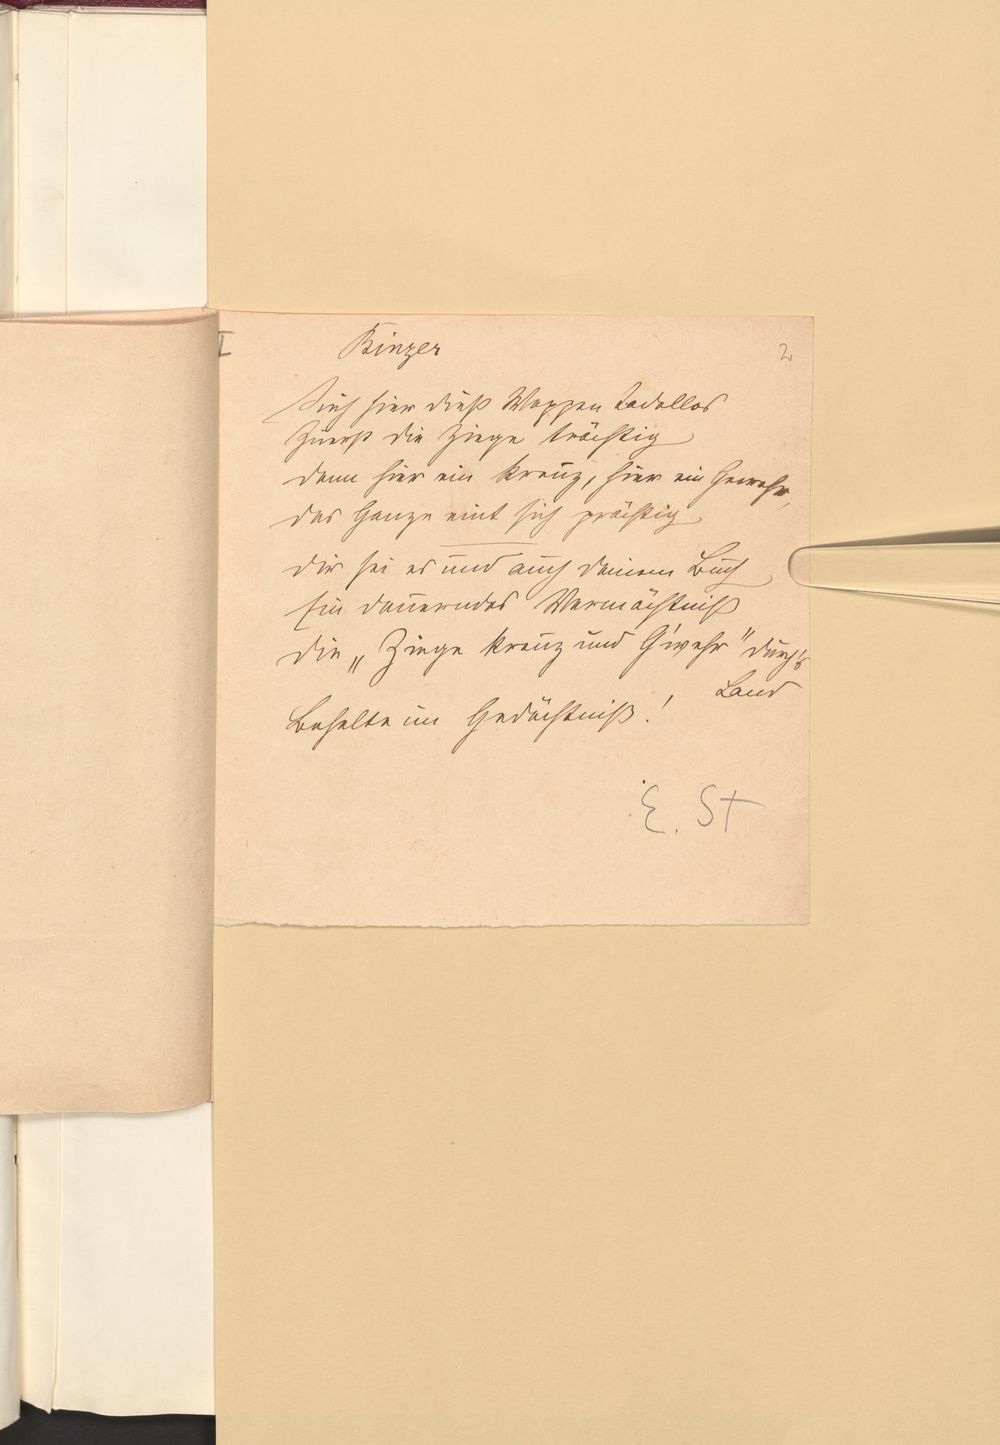 I
2
Binzer
Sieh hier dieß Wappen tadellos
Zuerst die Ziege trächtig
dann hier ein Kreuz, hier ein Gewehr,
das Ganze eint sich prächtig
dir sei es und auch deinem Buch
Ein dauerndes Vermächtniß
die „Ziege Kreuz und G'wehr" durch's
Land
Behalte im Gedächtniß!
E. St